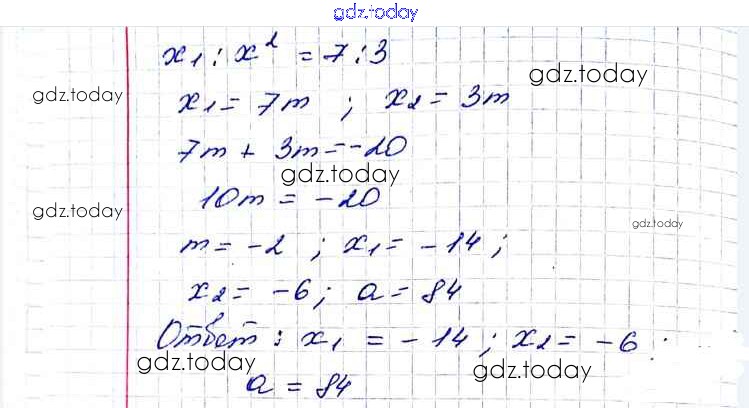 gdz.today
x₁ : x² = 7 : 3
gdz.today
gdz.today
x₁ = 7m ; x₂ = 3m
7m + 3m = -20
gdz.today
10m = -20
gdz.today
gdz.today
m = -2 ; x₁ = -14 ;
x₂ = -6 ; a = 84
Ответ : x₁ = -14 ; x₂ = -6 ;
gdz.today
gdz.today
a = 84